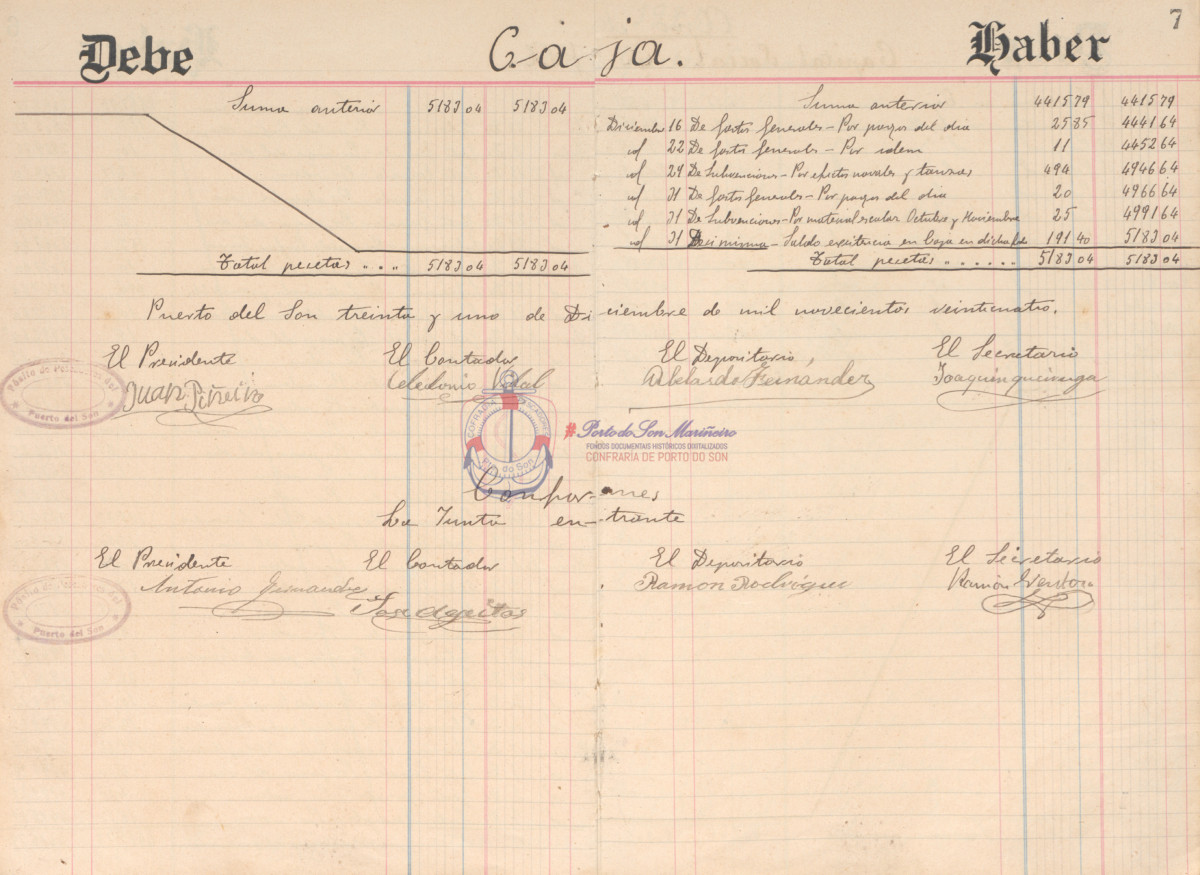 7
Debe Caja. Haber
Suma anterior 5183 04 5183 04
Total pesetas " . . . 5183 04 5183 04
Suma anterior 4415 79 4415 79
Diciembre 16 De gastos generales - Por pagos del dia 25 85 4441 64
id 22 De gastos generales - Por idem 11 4452 64
id 29 De Subvenciones - Por efectos navales y 494 4946 64
id 31 De gastos generales - Por pagos del dia 20 4966 64
id 31 De Subvenciones - Por material escolar Octubre y Noviembre 25 4991 64
id 31 Saldo existencia en Caja en dicha 191 40 5183 04
Total pesetas " . . . . . . 5183 04 5183 04
Puerto del Son treinta y uno de Diciembre de mil novecientos veinticuatro.
El Presidente El Contador El Depositario, El Secretario
Juan Piñeiro Celedonio Vidal Abelardo Fernández Joaquin
Pósito de Pescadores del
Puerto del Son
COFRADÍA PESCADORES
Pto. do Son
#Porto do Son Mariñeiro
FONDOS DOCUMENTAIS HISTÓRICOS DIGITALIZADOS
CONFRARÍA DE PORTO DO SON
Conformes
La Junta entrante
El Presidente El Contador El Depositario El Secretario
Antonio Fernandez Jose Ageitos Ramon Rodríguez Ramón
Pósito de Pescadores del
Puerto del Son